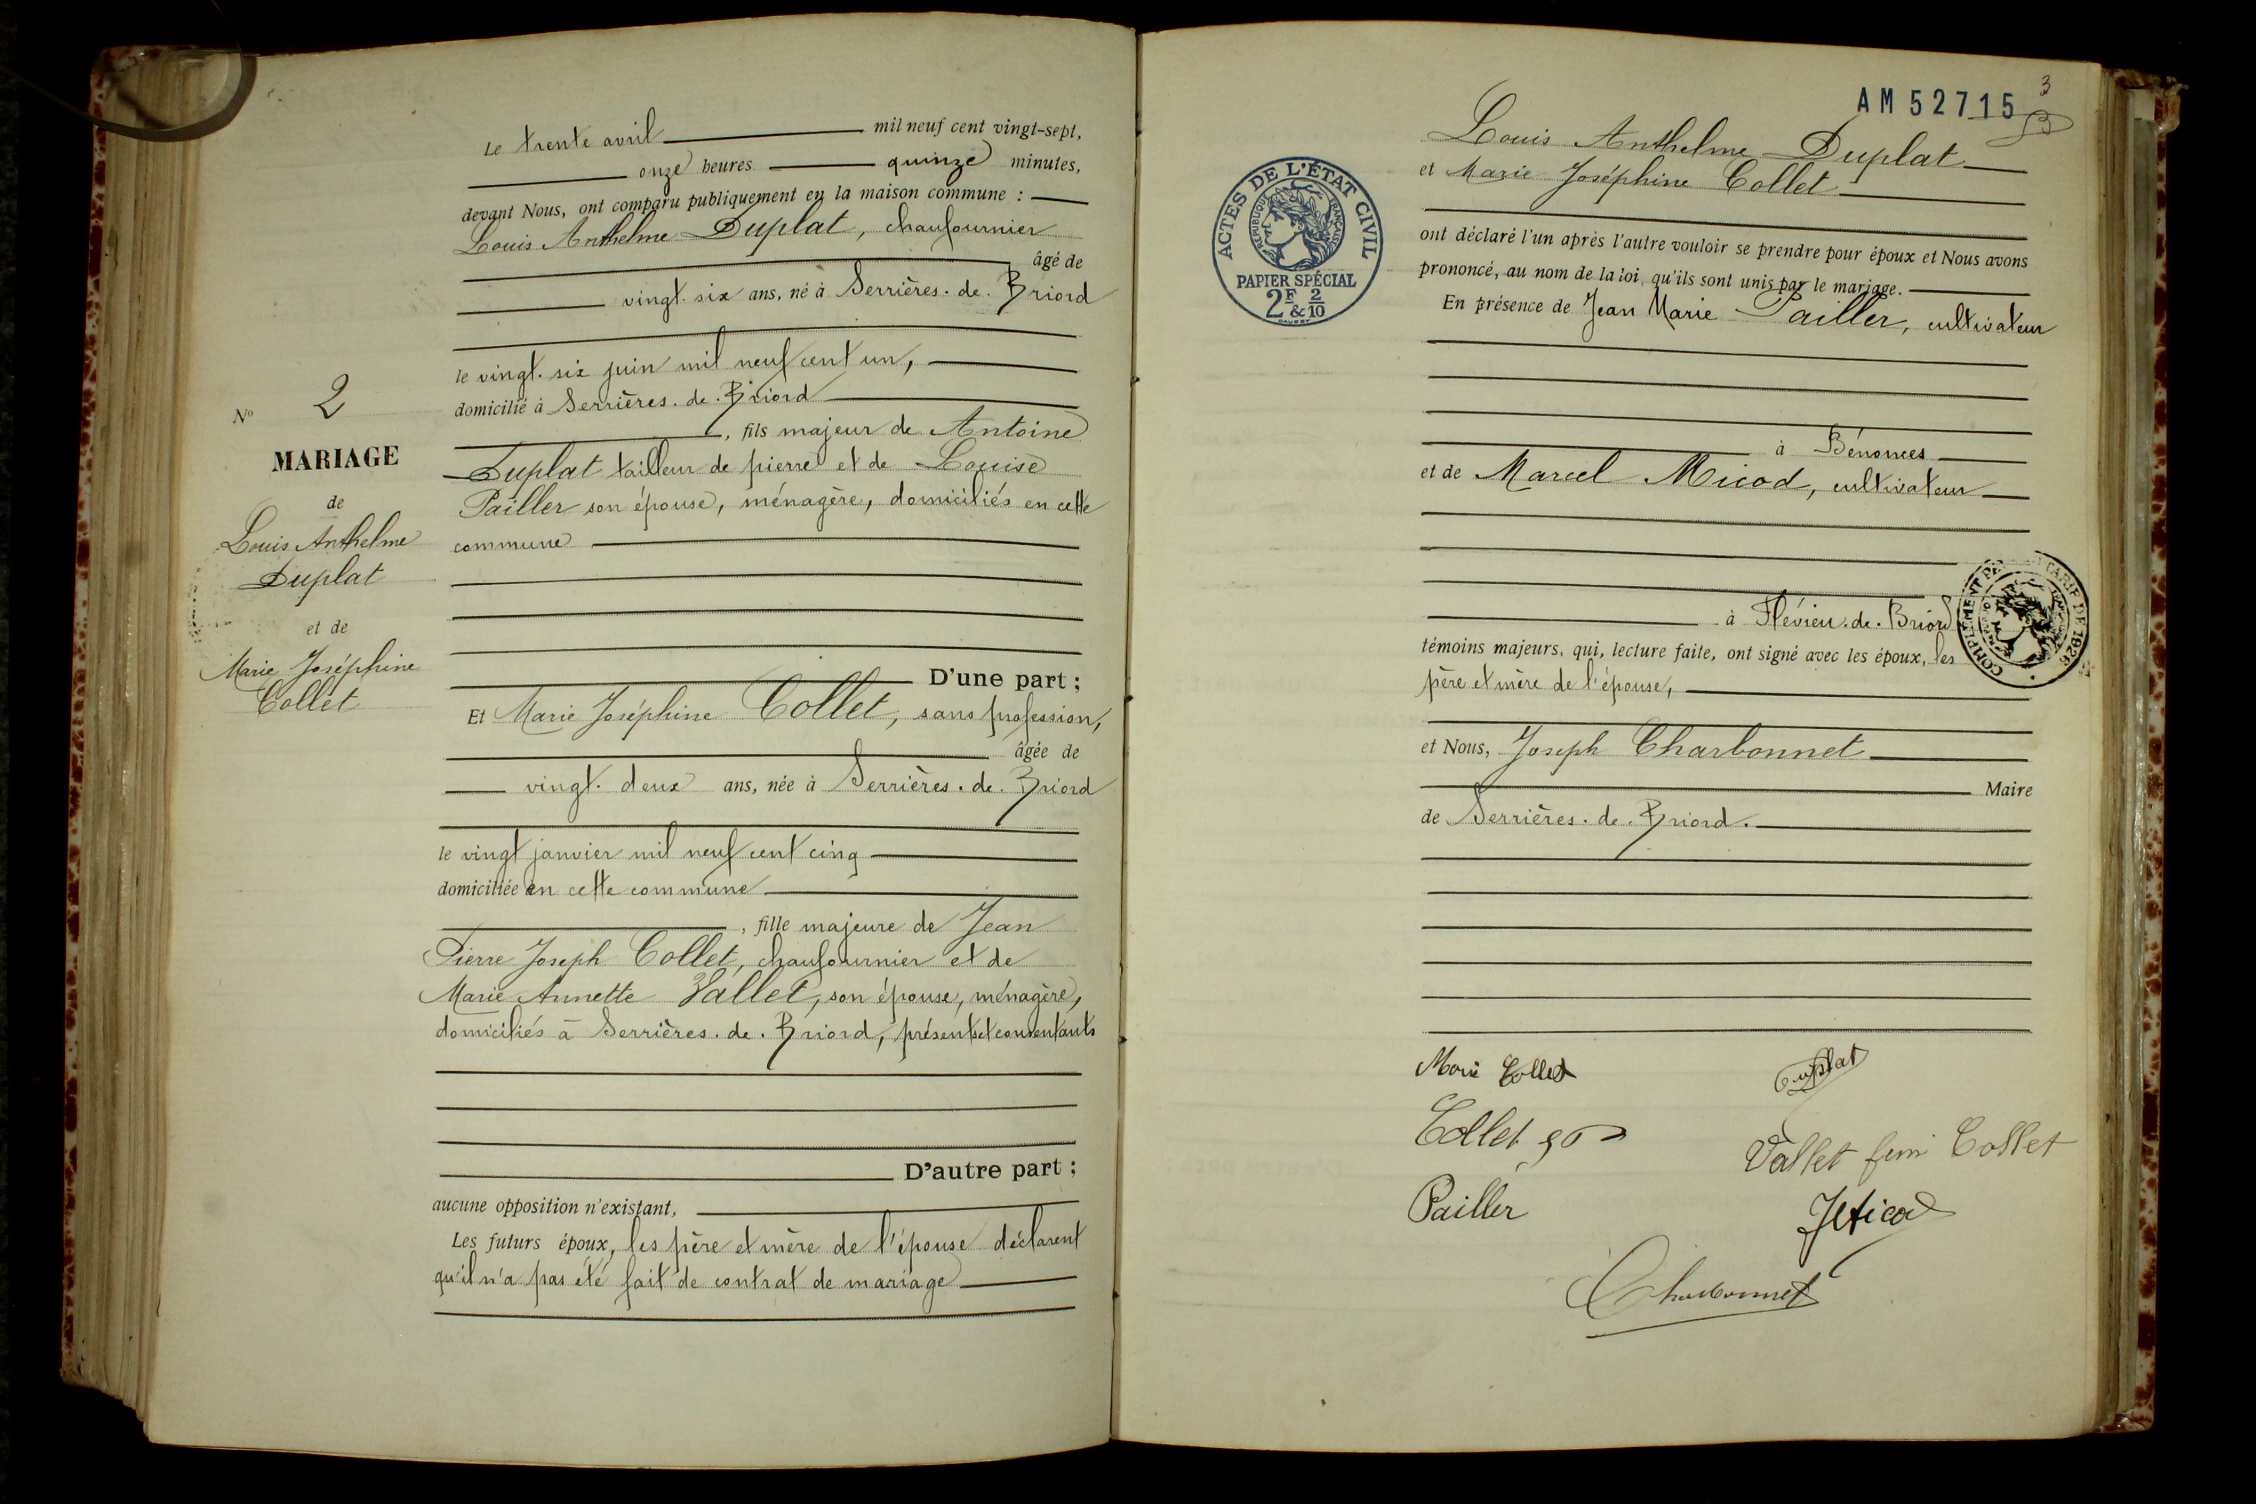 Le trente avril mil neuf cent vingt-sept,
onze heures quinze minutes,
devant Nous, ont comparu publiquement en la maison commune :
Louis Anthelme Duplat, chaufournier
âgé de
vingt-six ans, né à Serrières-de-Briord
le vingt-six juin mil neuf cent un,
domicilié à Serrières-de-Briord
, fils majeur de Antoine
Duplat tailleur de pierre et de Louise
Pailler son épouse, ménagère, domiciliés en cette
commune
D'une part ;
Et Marie Joséphine Collet, sans profession,
âgée de
vingt-deux ans, née à Serrières-de-Briord
le vingt janvier mil neuf cent cinq
domiciliée en cette commune
, fille majeure de Jean
Pierre Joseph Collet, chaufournier et de
Marie Annette Vallet, son épouse, ménagère,
domiciliés à Serrières-de-Briord, présents et consentants
D'autre part ;
aucune opposition n'existant,
Les futurs époux, les père et mère de l'épouse déclarent
qu'il n'a pas été fait de contrat de mariage
N° 2
MARIAGE
de
Louis Anthelme
Duplat
et de
Marie Joséphine
Collet
AM 52715
3
Louis Anthelme Duplat
et Marie Joséphine Collet
ont déclaré l'un après l'autre vouloir se prendre pour époux et Nous avons
prononcé, au nom de la loi, qu'ils sont unis par le mariage.
En présence de Jean Marie Pailler, cultivateur
à Bénonces
et de Marcel Micod, cultivateur
à Flévieu-de-Briord
témoins majeurs, qui, lecture faite, ont signé avec les époux, les
père et mère de l'épouse,
et Nous, Joseph Charbonnet
Maire
de Serrières-de-Briord.
ACTES DE L'ÉTAT CIVIL
RÉPUBLIQUE FRANÇAISE
PAPIER SPÉCIAL
2F & 2/10
COMPLÉMENT DE TARIF DE 1926
Marie Collet
Duplat
Collet
Vallet fem Collet
Pailler
Micod
Charbonnet